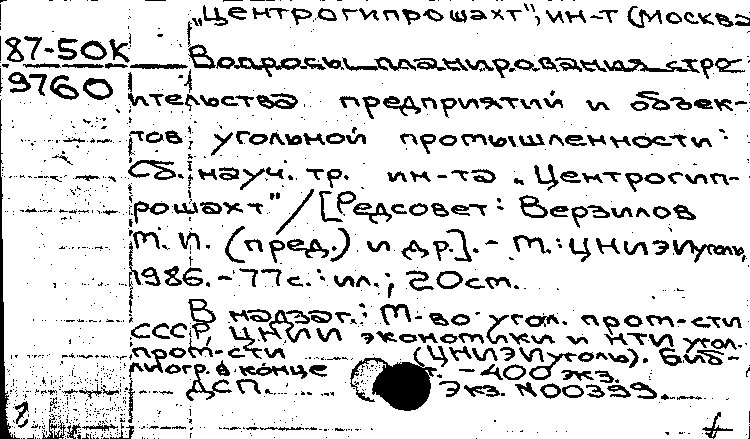 „Центрогипрошахт", ин-т (Москва
87-50К
9760
Вопросы планирования стро
ительства предприятий и объек-
тов угольной промышленности:
Сб. науч. тр. ин-та „Центрогип-
рошахт" / [Редсовет: Верзилов
М. И. (пред.) и др.]. - М.: ЦНИЭИуголь,
1986. - 77с.: ил.; 20см.
В надзаг.: М-во угол. пром-сти
СССР, ЦНИИ экономики и НТИ угол.
пром-сти (ЦНИЭИуголь). Биб-
лиогр. в конце т. - 400 экз.
ДСП. Экз. N00399.